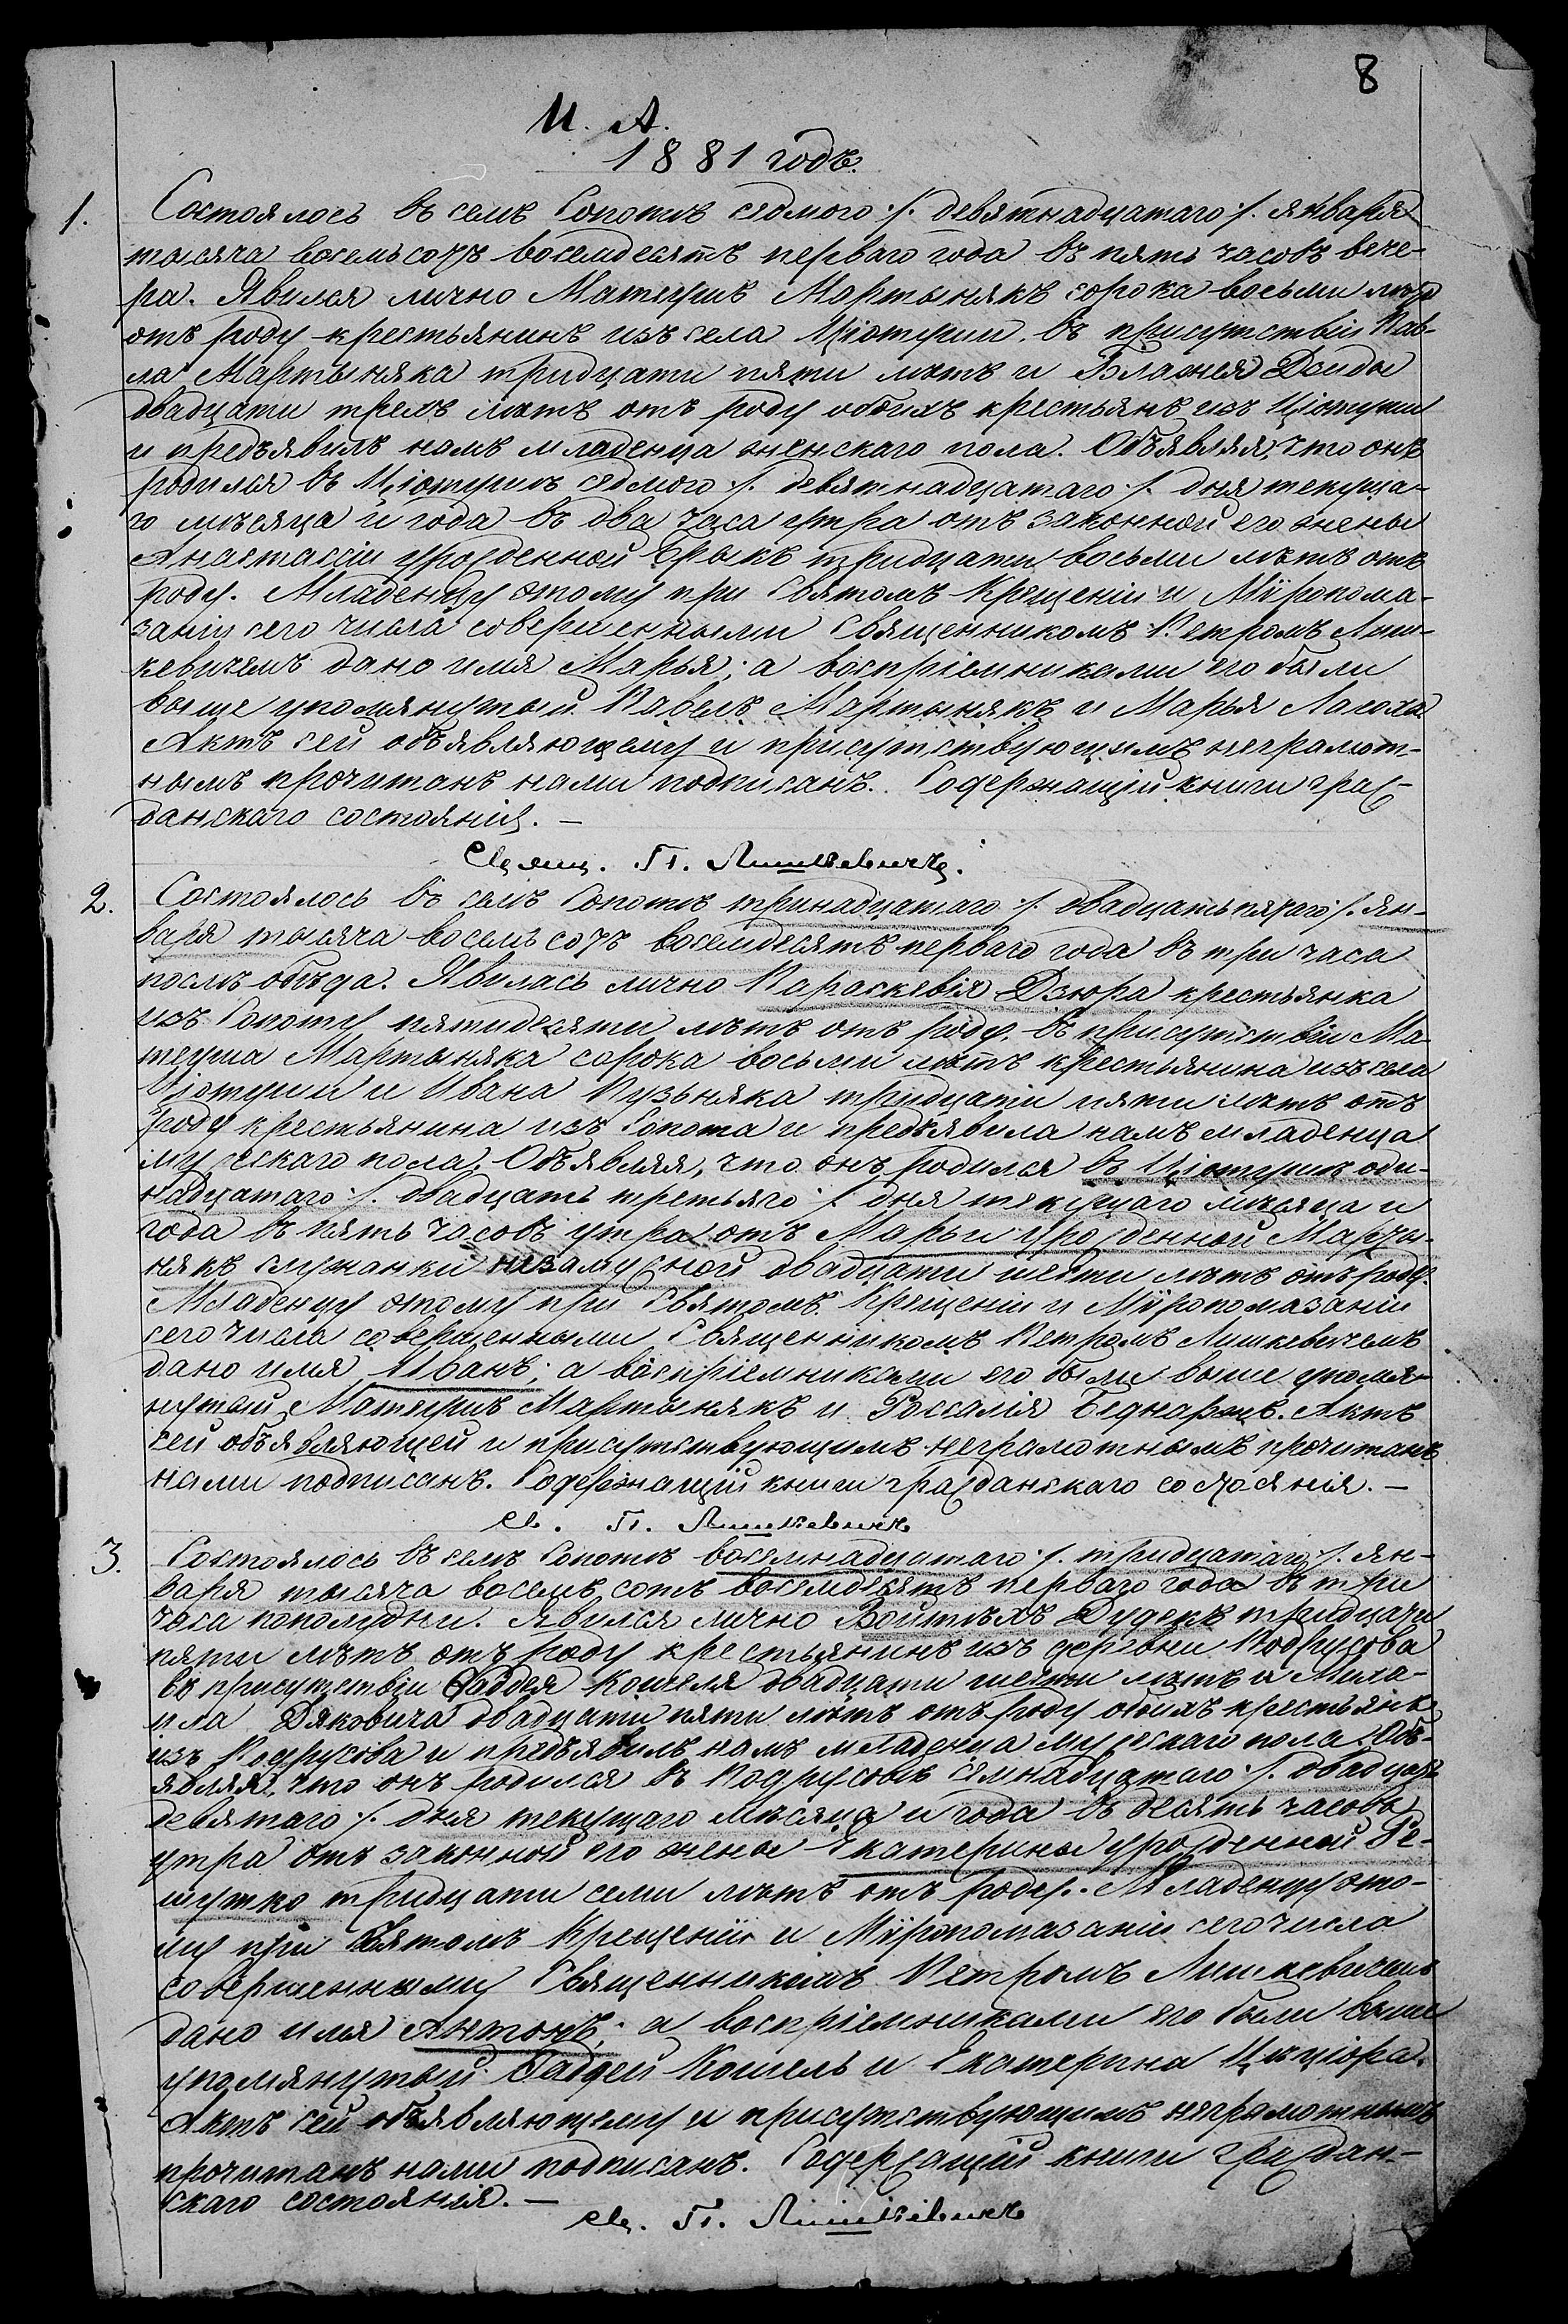 8
И. А.
1881 годъ.
1. Состоялось въ селѣ Сопотѣ седмого ./. девятнадцатаго ./. января
тысяча восемьсотъ восемдесятъ перваго года въ пять часовъ вече-
ра. Явился лично Матеушъ Мартынякъ сорока восьми лѣтъ
отъ роду крестьянинъ изъ села Ціотуши въ присутствіи Пав-
ла Мартыняка тридцати пяти лѣтъ и Блажея Дзиды
двадцати трехъ лѣтъ отъ роду обоихъ крестьянъ изъ Ціотуши
и предъявилъ намъ младенца женскаго пола. Объявляя, что онъ
родился въ Ціотушѣ седмого ./. девятнадцатаго ./. дня текуща-
го мѣсяца и года въ два часа утра отъ законной его жены
Анастасіи урожденной Брыкъ тридцати восьми лѣтъ отъ
роду. Младенцу этому при Святомъ Крещеніи и Мѵропома-
заніи сего числа совершенными Священникомъ Петромъ Лиш-
кевичемъ дано имя Марья; а воспріемниками его были
выше упомянутый Павелъ Мартынякъ и Марья Лагожа
Актъ сей объявляющему и присутствующимъ неграмот-
нымъ прочитанъ нами подписанъ. Содержащій книги граж-
данскаго состоянія. —
Свящ. П. Лишкевичъ.
2. Состоялось въ селѣ Сопотѣ тринадцатаго ./. двадцать пятаго ./. Ян-
варя тысяча восемьсотъ восемдесятъ перваго года въ три часа
послѣ обѣда. Явилась лично Параскевія Дзюра крестьянка
изъ Сопоту пятидесяти лѣтъ отъ роду, въ присутствіи Ма-
теуша Мартыняка сорока восьми лѣтъ крестьянина изъ села
Ціотуши и Ивана Кузьняка тридцати пяти лѣтъ отъ
роду крестьянина изъ Сопота и предъявила намъ младенца
мужескаго пола. Объявляя, что онъ родился въ Ціотушѣ оди-
надцатаго ./. двадцать третьяго ./. дня текущаго мѣсяца и
года въ пять часовъ утра отъ Марьи урожденной Марты-
някъ служанки незамужной двадцати шести лѣтъ отъ роду.
Младенцу этому при Святомъ Крещеніи и Мѵропомазаніи
сего числа совершенными Священникомъ Петромъ Лишкевичемъ
дано имя Иванъ; а воспріемниками его были выше упомя-
нутый Матеушъ Мартынякъ и Россалія Беднаржъ. Актъ
сей объявляющей и присутствующимъ неграмотнымъ прочитанъ
нами подписанъ. Содержащій книги гражданскаго состоянія. —
Св. П. Лишкевичъ
3. Состоялось въ селѣ Сопотѣ восемнадцатаго ./. тридцатаго ./. Ян-
варя тысяча восемь сотъ восемдесятъ перваго года въ три
часа пополудни. Явился лично Войтѣхъ Дудекъ тридцати
пяти лѣтъ отъ роду крестьянинъ изъ деревни Подрусова
въ присутствіи Фаддея Кошеля двадцати шести лѣтъ и Миха-
ила Дяковича двадцати пяти лѣтъ отъ роду обоихъ крестьянъ
изъ Подрусова и предъявилъ намъ младенца мужескаго пола. Объ-
являя, что онъ родился въ Подрусовѣ семнадцатаго ./. двадцать
девятаго ./. дня текущаго мѣсяца и года въ десять часовъ
утра отъ законной его жены Екатерины урожденной Ре-
шутко тридцати семи лѣтъ отъ роду. Младенцу это-
му при Святомъ Крещеніи и Мѵропомазаніи сего числа
совершенными Священникомъ Петромъ Лишкевичемъ
дано имя Антонъ; а воспріемниками его были выше
упомянутый Фаддей Кошель и Екатерина Цѣціора.
Актъ сей объявляющему и присутствующимъ неграмотнымъ
прочитанъ нами подписанъ. Содержащій книги граждан-
скаго состоянія. —
Св. П. Лишкевичъ